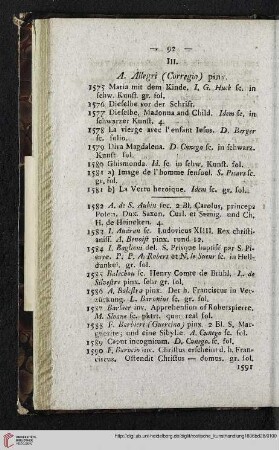 — 92 —
III.
A. Allegri (Corregio) pinx.
1575 Maria mit dem Kinde. I. G. Huck sc. in
schw. Kunst. gr. fol.
1576 Dieselbe vor der Schrift.
1577 Dieselbe, Madonna and Child. Idem sc. in
schwarzer Kunst. 4.
1578 La vierge avec l'enfant Iesus. D. Berger
sc. folio.
1579 Diva Magdalena. D. Cunego sc. in schwarz.
Kunst. fol.
1580 Ghismonda. Id. sc. in schw. Kunst. fol.
1581 a) Image de l'homme sensuel. S. Picart sc.
gr. fol.
1581 b) La Vertu heroique. Idem sc. gr. fol.
1582 A. de S. Aubin sec. 2 Bl. Carolus, princeps
Polon. Dux. Saxon. Curl. et Semig. und Ch.
H. de Heineken. 4.
1583 I. Audran sc. Ludovicus XIIII. Rex christi-
aniss. A. Benoist pinx. rund 12.
1584 I. Baglioni del. S. Prisque baptisée par S. Pi-
erre. P. P. A. Robert et N. le Sueur sc. in Hell-
dunkel. gr. fol.
1585 Balechou sc. Henry Comte de Brühl. L. de
Silvestre pinx. sehr gr. fol.
1586 A. Balestra pinx. Der h. Franciscus in Ver-
zückung. L. Baronius sc. gr. fol.
1587 Barbier inv. Apprehension of Roberspierre.
M. Sloane sc. pktrt. quer real fol.
1588 F. Barbieri (Guercino) pinx. 2 Bl. S. Mar-
guerite; und eine Sibylle. A. Cunego sc. fol.
1589 Caput incognitum. D. Cunego sc. fol.
1590 F. Barocio inv. Christus erscheint d. h. Fran-
ciscus. Ostendit Christus — domus. gr. fol.
1591